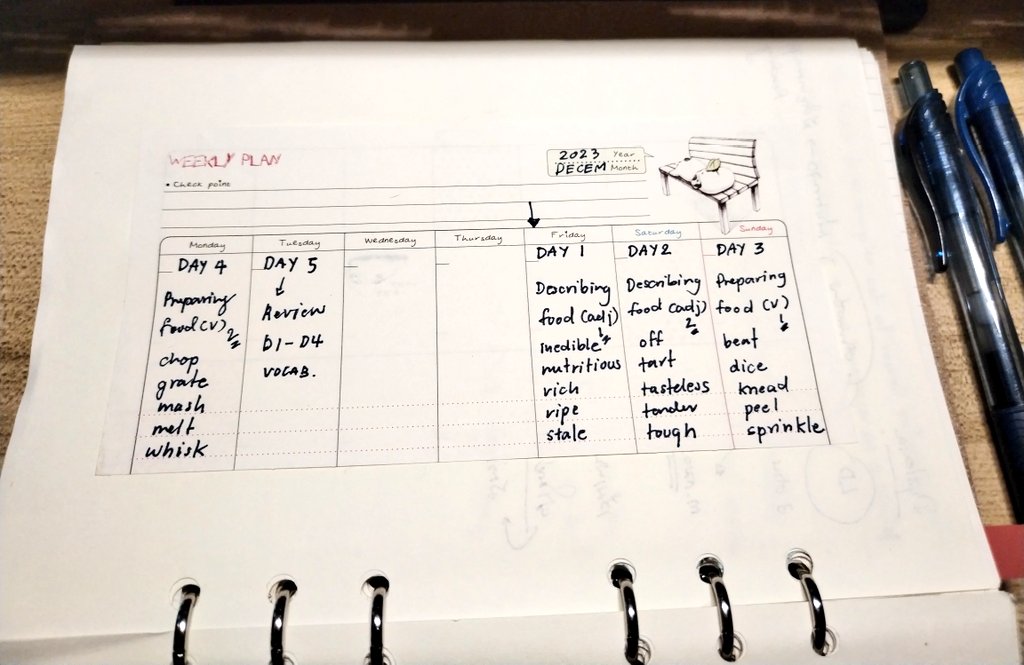 WEEKLY PLAN
2023 Year
DECEM Month
• Check point
Monday Tuesday Wednesday Thursday Friday Saturday Sunday
DAY 4
Preparing
food (v) 2
chop
grate
mash
melt
whisk
DAY 5
↓
Review
D1-D4
VOCAB.
DAY 1
Describing
food (adj) 1
inedible
nutritious
rich
ripe
stale
DAY 2
Describing
food (adj) 2
off
tart
tasteless
tender
tough
DAY 3
Preparing
food (v) 1
beat
dice
knead
peel
sprinkle